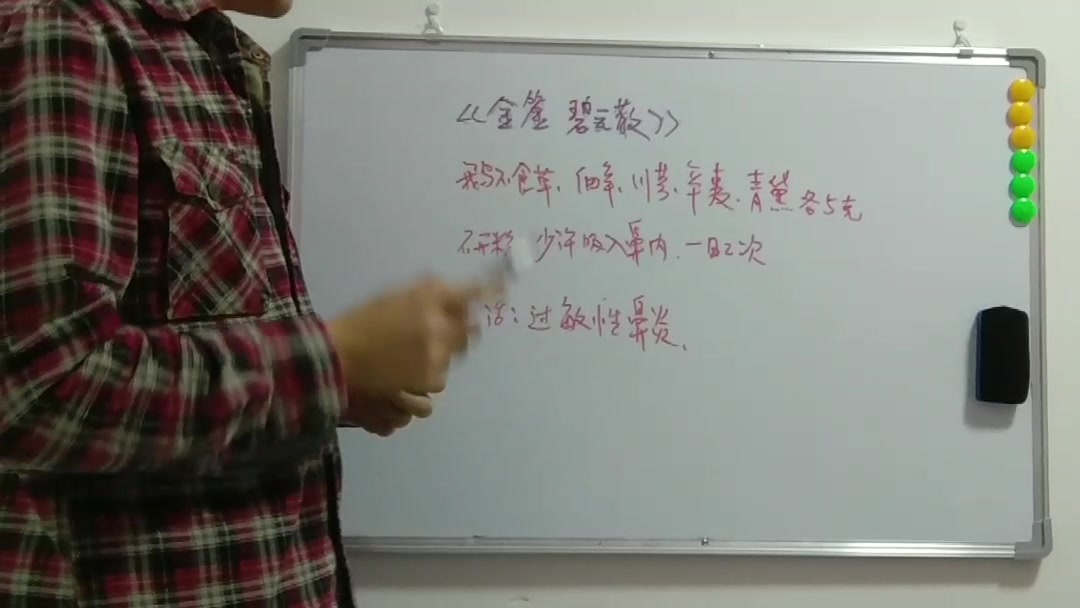 《金鉴 碧云散》
鹅不食草、细辛、川芎、辛夷、青黛各5克
研粉 少许吸入鼻内、一日2次
治：过敏性鼻炎、